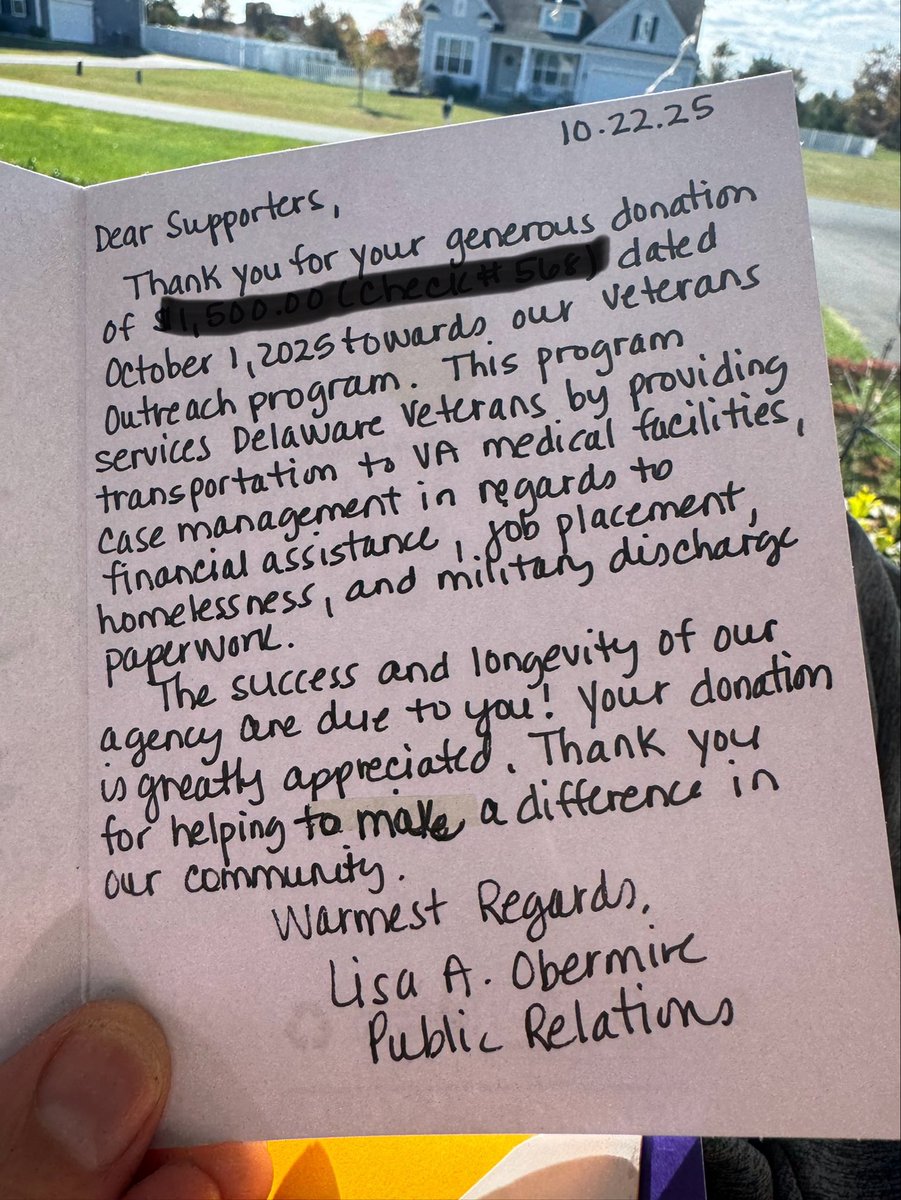 10.22.25
Dear Supporters,
Thank you for your generous donation
of dated
October 1, 2025 towards our veterans
Outreach program. This program
services Delaware veterans by providing
transportation to VA medical facilities,
case management in regards to
financial assistance, job placement,
homelessness, and military discharge
paperwork.
The success and longevity of our
agency are due to you! Your donation
is greatly appreciated. Thank you
for helping to make a difference in
our community.
Warmest Regards,
Lisa A. Obermire
Public Relations